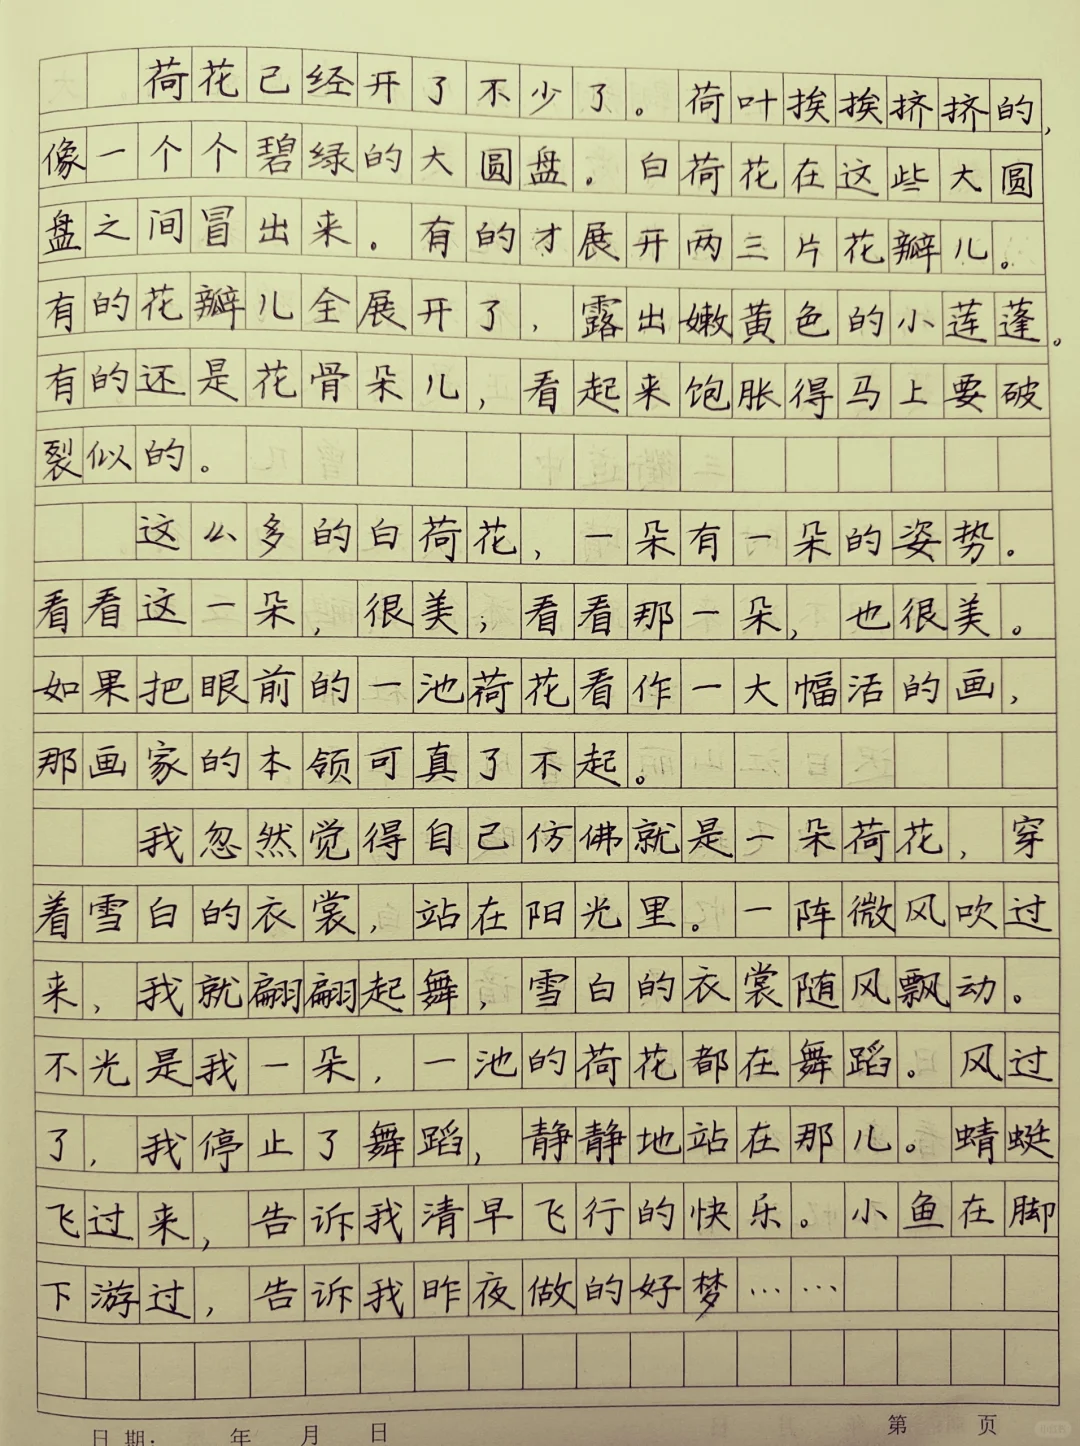 荷花已经开了不少了。荷叶挨挨挤挤的,
像一个个碧绿的大圆盘。白荷花在这些大圆
盘之间冒出来。有的才展开两三片花瓣儿。
有的花瓣儿全展开了,露出嫩黄色的小莲蓬。
有的还是花骨朵儿,看起来饱胀得马上要破
裂似的。
这么多的白荷花,一朵有一朵的姿势。
看看这一朵,很美;看看那一朵,也很美。
如果把眼前的一池荷花看作一大幅活的画,
那画家的本领可真了不起。
我忽然觉得自己仿佛就是一朵荷花,穿
着雪白的衣裳,站在阳光里。一阵微风吹过
来,我就翩翩起舞,雪白的衣裳随风飘动。
不光是我一朵,一池的荷花都在舞蹈。风过
了,我停止了舞蹈,静静地站在那儿。蜻蜓
飞过来,告诉我清早飞行的快乐。小鱼在脚
下游过,告诉我昨夜做的好梦……
日期: 年 月 日 第 页